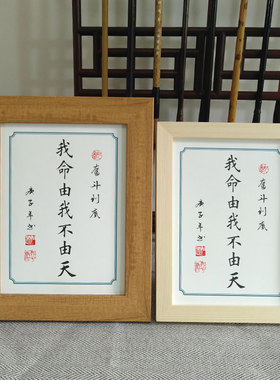 奋斗到底
我命由我不由天
庚子年书
奋斗到底
我命由我不由天
庚子年书